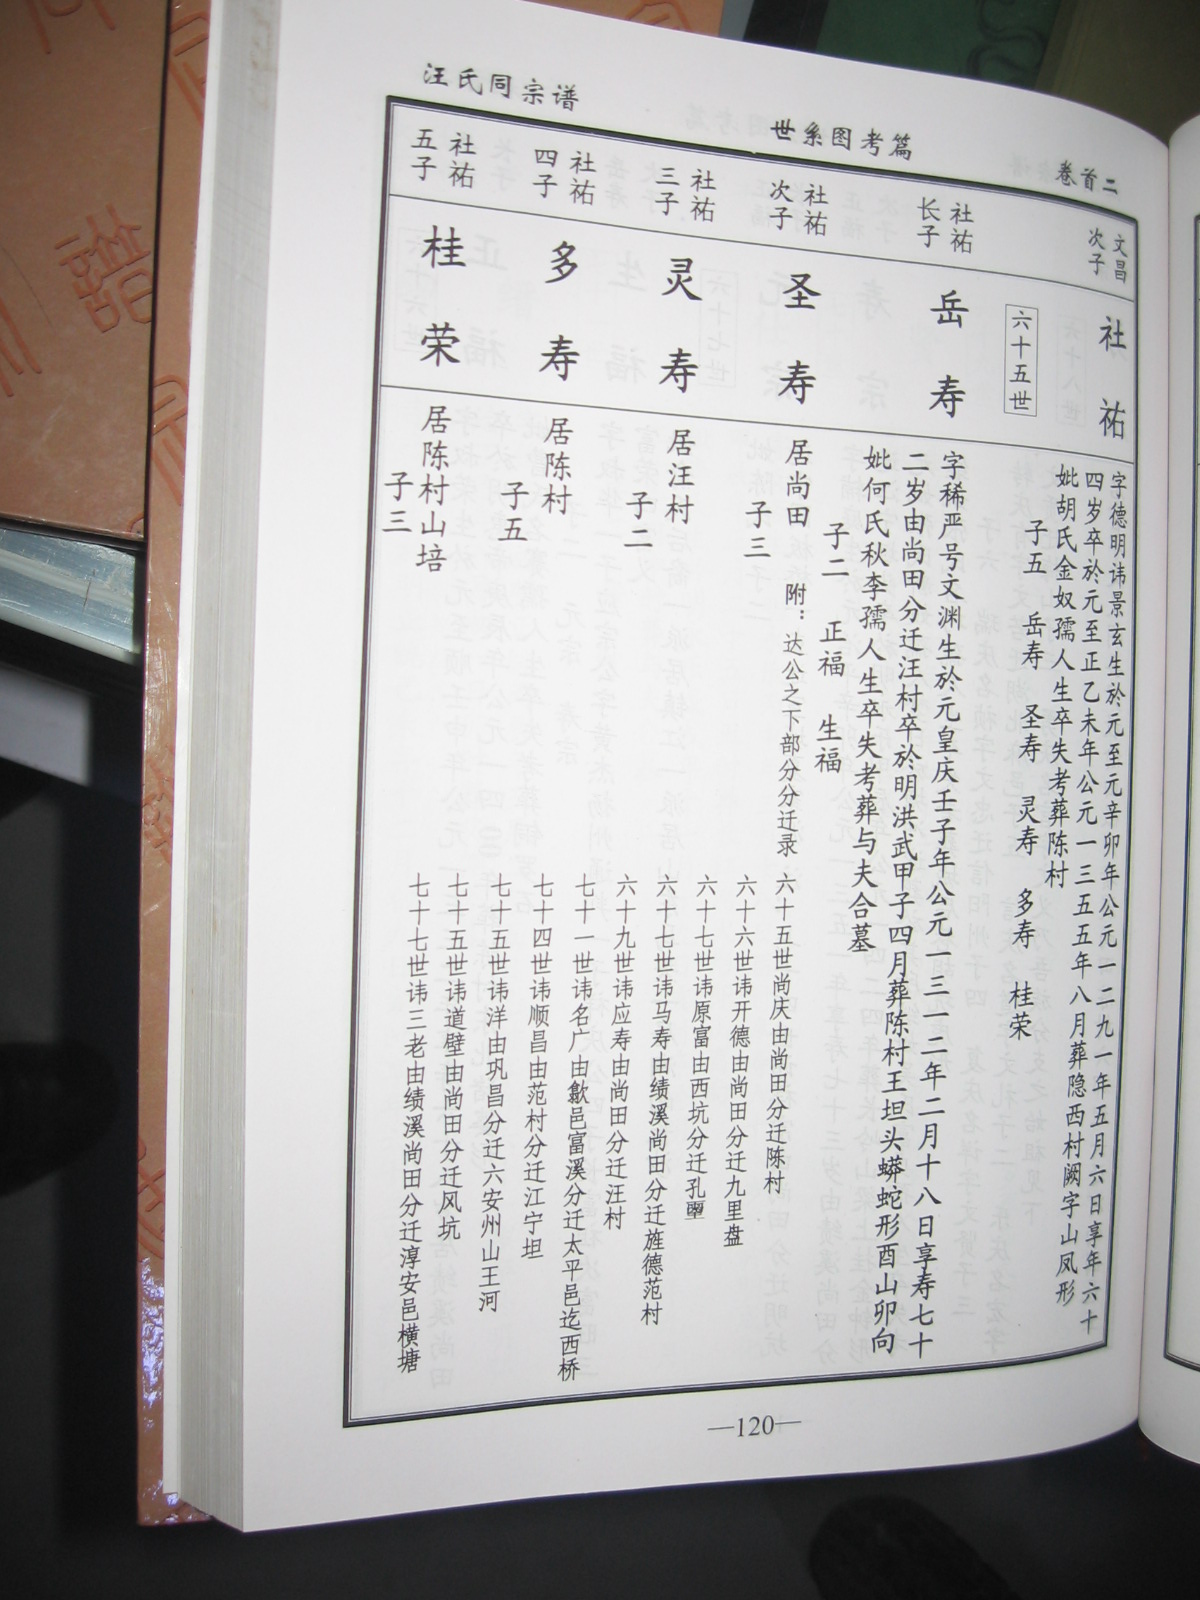 汪氏同宗谱
世系图考篇
卷首二
文昌
次子
社祐
字德明讳景玄生於元至元辛卯年公元一二九一年五月六日享年六十
四岁卒於元至正乙未年公元一三五五年八月葬隐西村阙字山凤形
妣胡氏金奴孺人生卒失考葬陈村
子五 岳寿 圣寿 灵寿 多寿 桂荣
六十五世
社祐
长子
岳寿
字稀严号文渊生於元皇庆壬子年公元一三一二年二月十八日享寿七十
二岁由尚田分迁汪村卒於明洪武甲子四月葬陈村王坦头蟒蛇形酉山卯向
妣何氏秋李孺人生卒失考葬与夫合墓
子二 正福 生福
社祐
次子
圣寿
居尚田
子三
附：达公之下部分分迁录
六十五世尚庆由尚田分迁陈村
六十六世讳开德由尚田分迁九里盘
六十七世讳原富由西坑分迁孔
六十七世讳马寿由绩溪尚田分迁旌德范村
六十九世讳应寿由尚田分迁汪村
七十一世讳名广由歙邑富溪分迁太平邑迄西桥
七十四世讳顺昌由范村分迁江宁坦
七十五世讳洋由巩昌分迁六安州山王河
七十五世讳道壁由尚田分迁风坑
七十七世讳三老由绩溪尚田分迁淳安邑横塘
社祐
三子
灵寿
居汪村
子二
社祐
四子
多寿
居陈村
子五
社祐
五子
桂荣
居陈村山培
子三
—120—